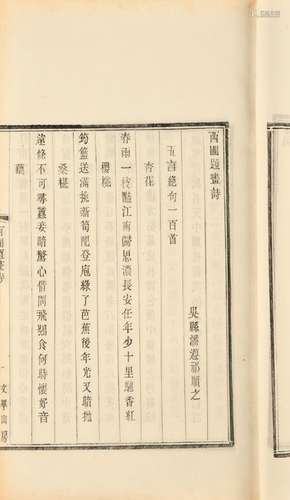 西圃題畫詩
吳縣潘遵祁順之
五言絕句一百首
杏花
春雨一枝豔江南歸思濃長安任年少十里馳香紅
櫻桃
筠籃送滿艶新筍配登庖綠了芭蕉後年光又暗拋
桑椹
遠條不可尋蠶妾暗驚心借問飛鴞食何時懷好音
藕
文學山房